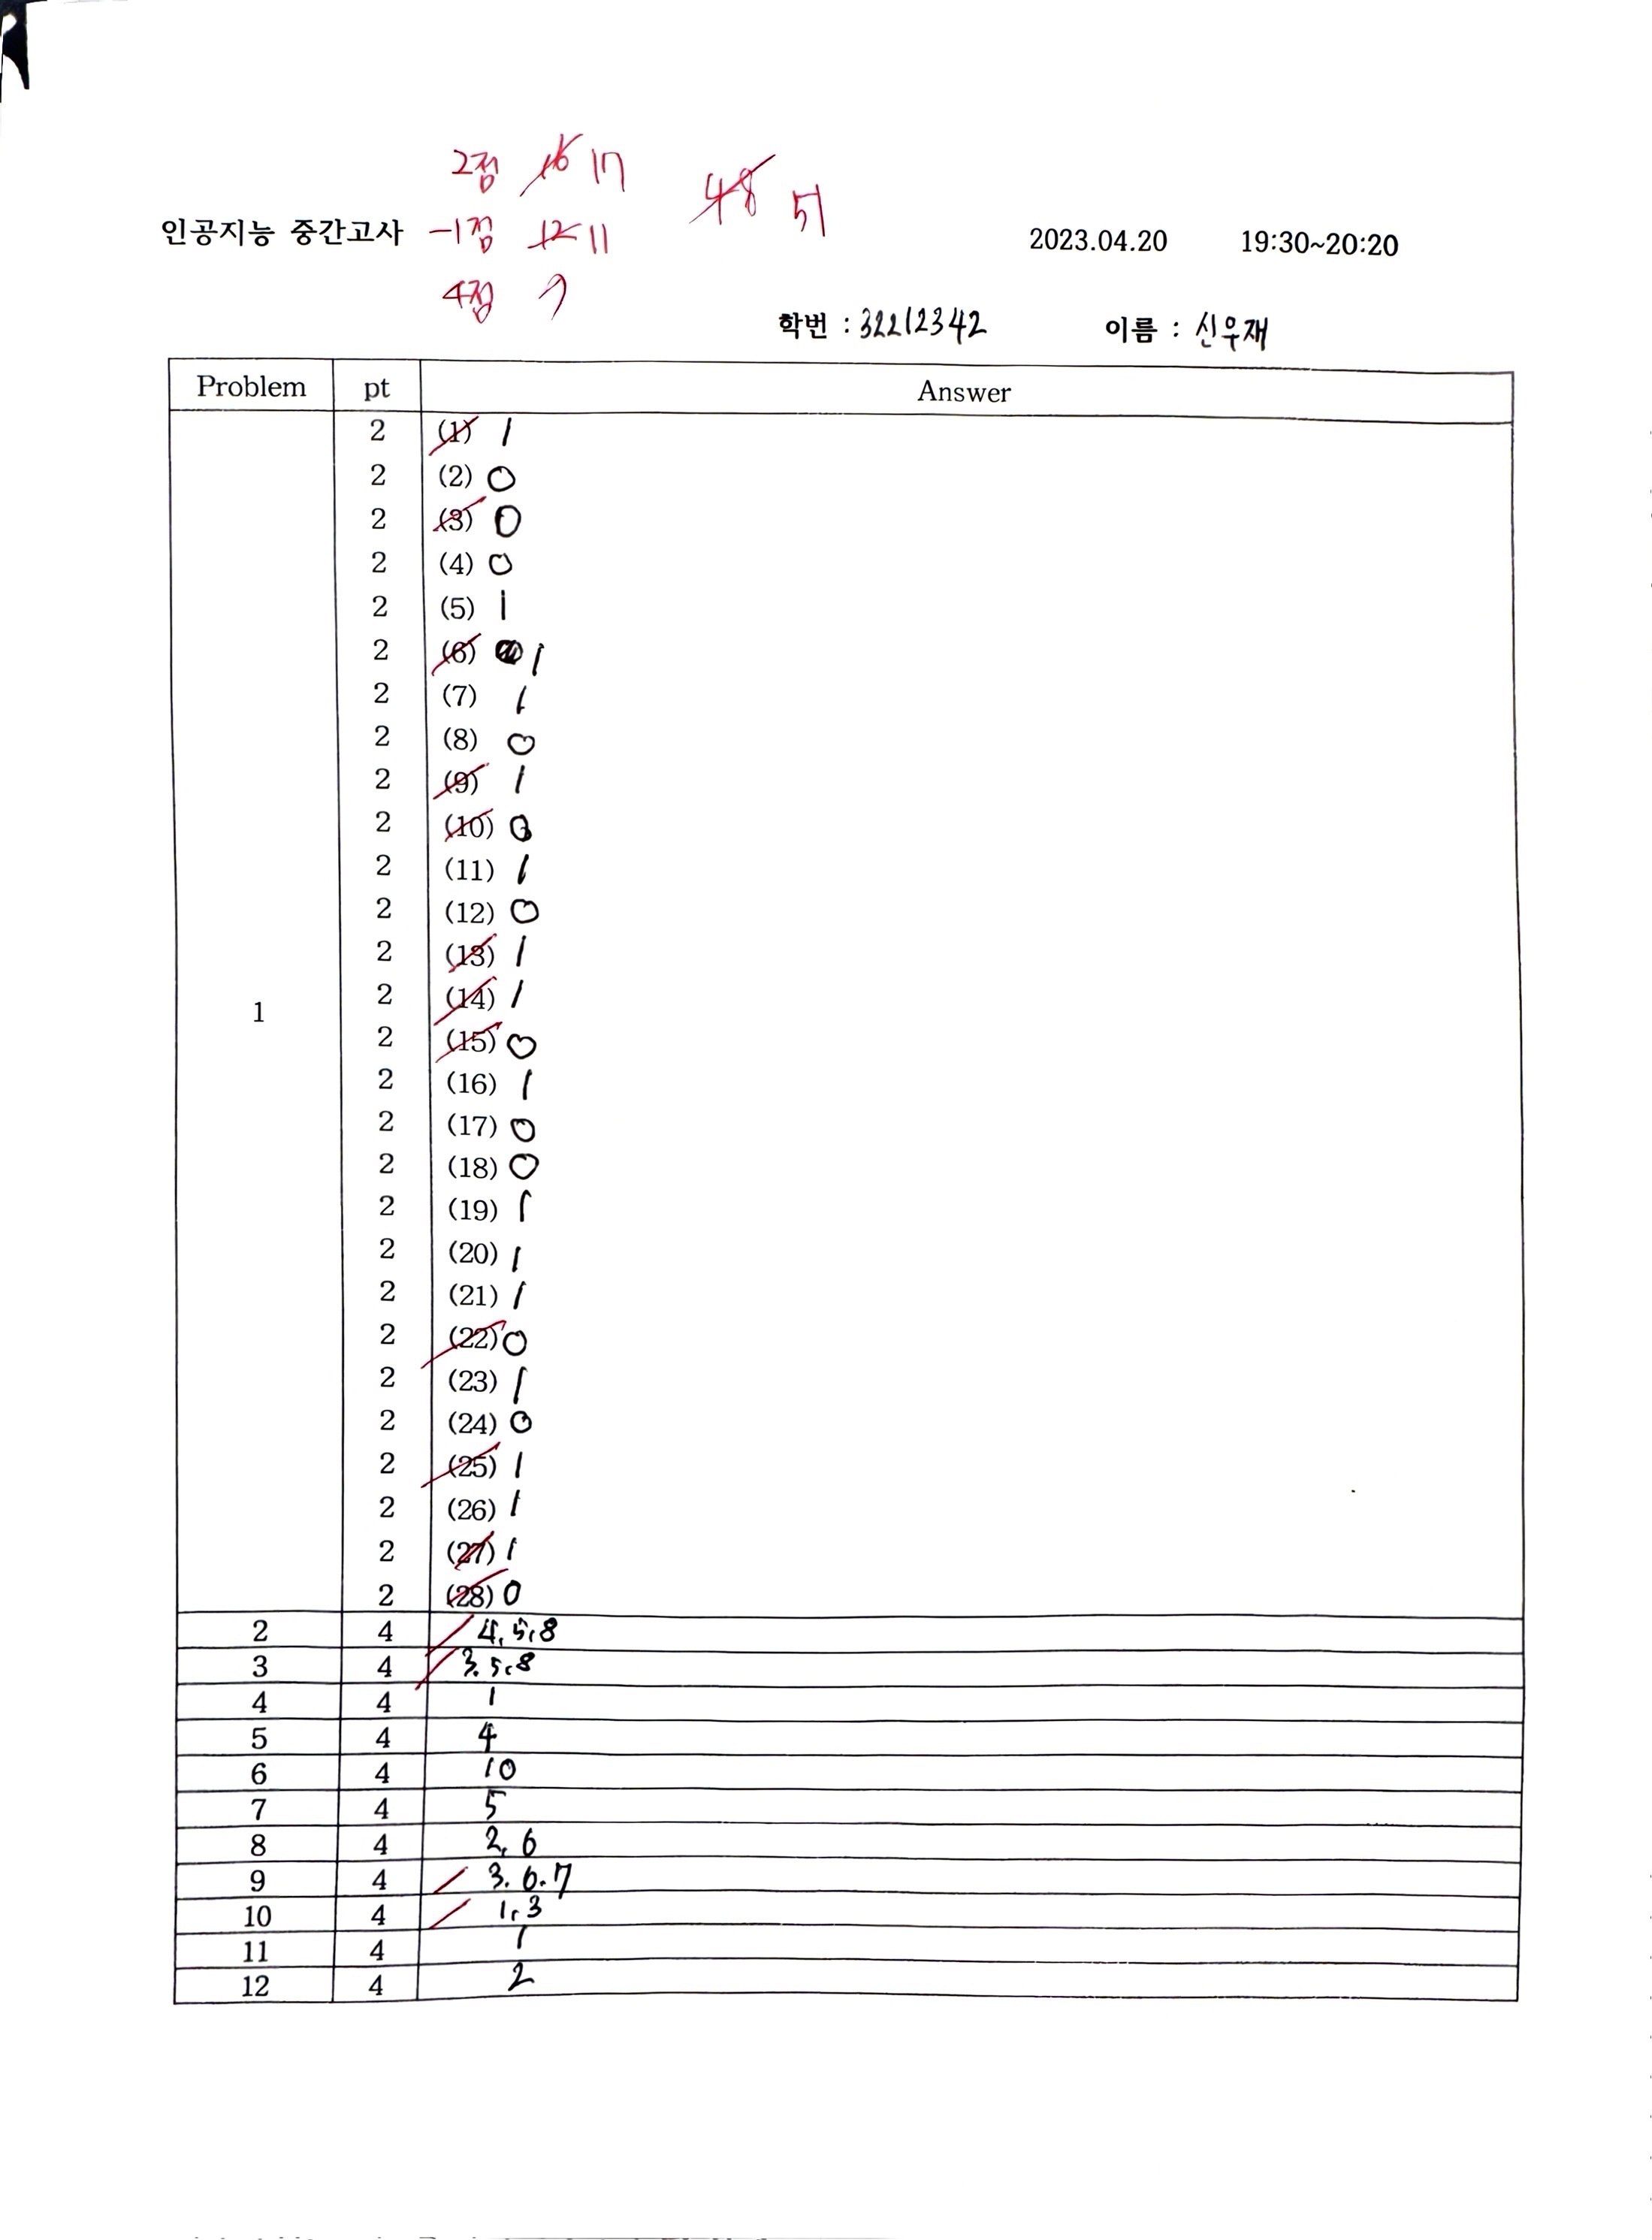 2점 16 17 48 51
인공지능 중간고사 -1점 12 11 2023.04.20 19:30~20:20
4점 7
학번 : 32212342 이름 : 신우재
Problem pt Answer
2 (1) 1
2 (2) 0
2 (3) 0
2 (4) 0
2 (5) 1
2 (6) 1
2 (7) 1
2 (8) 0
2 (9) 1
2 (10) 0
2 (11) 1
2 (12) 0
2 (13) 1
1 2 (14) 1
2 (15) 0
2 (16) 1
2 (17) 0
2 (18) 0
2 (19) 1
2 (20) 1
2 (21) 1
2 (22) 0
2 (23) 1
2 (24) 0
2 (25) 1
2 (26) 1
2 (27) 1
2 (28) 0
2 4 4, 5, 8
3 4 3. 5, 8
4 4 1
5 4 4
6 4 10
7 4 5
8 4 2, 6
9 4 3. 6. 7
10 4 1, 3
11 4 1
12 4 2